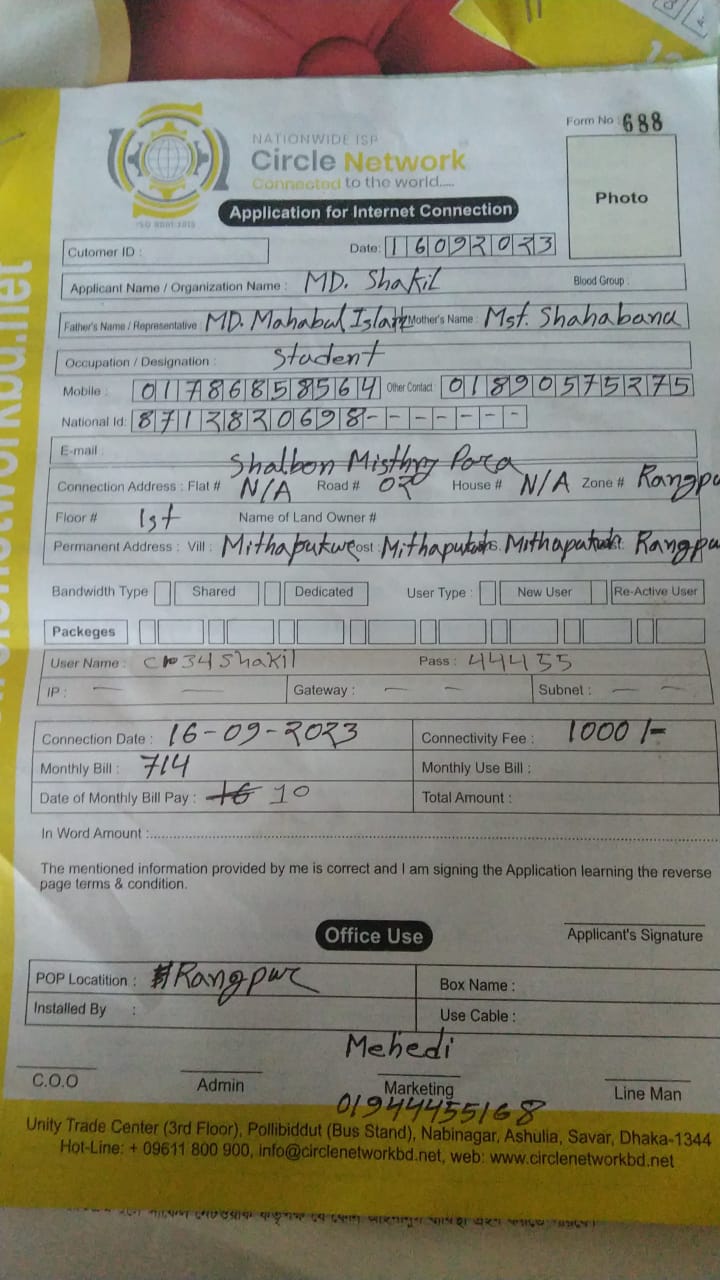 Form No : 688
NATIONWIDE ISP
Circle Network
Connected to the world.....
ISO 9001:2015
Photo
Application for Internet Connection
Cutomer ID :
Date: 16092023
Applicant Name / Organization Name : MD. Shakil Blood Group :
Father's Name / Representative : MD. Mahabul Islam Mother's Name : Mst. Shahabana
Occupation / Designation : Student
Mobile : 01786858564 Other Contact 01890575275
National Id: 8712820698-------
E-mail :
Shalbon Misthry Para
Connection Address : Flat # N/A Road # 02 House # N/A Zone # Rangpu
Floor # 1st Name of Land Owner #
Permanent Address : Vill : Mithapukur ost Mithapukur s. Mithapukur Rangpu
Bandwidth Type Shared Dedicated User Type : New User Re-Active User
Packeges
User Name : 34shakil Pass : 44455
IP : — — Gateway : — — Subnet : — —
Connection Date : 16-09-2023 Connectivity Fee : 1000/-
Monthly Bill : 714 Monthly Use Bill :
Date of Monthly Bill Pay : 16 10 Total Amount :
In Word Amount :
The mentioned information provided by me is correct and I am signing the Application learning the reverse
page terms & condition.
Applicant's Signature
Office Use
POP Locatition : Rangpur Box Name :
Installed By : Use Cable :
Mehedi
C.O.O Admin Marketing Line Man
01944455168
Unity Trade Center (3rd Floor), Pollibiddut (Bus Stand), Nabinagar, Ashulia, Savar, Dhaka-1344
Hot-Line: + 09611 800 900, info@circlenetworkbd.net, web: www.circlenetworkbd.net